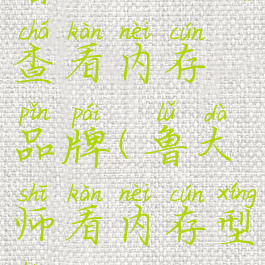 chá kàn nèi cún
查看内存
pǐn pái lǔ dà
品牌(鲁大
shī kàn nèi cún xíng
师看内存型